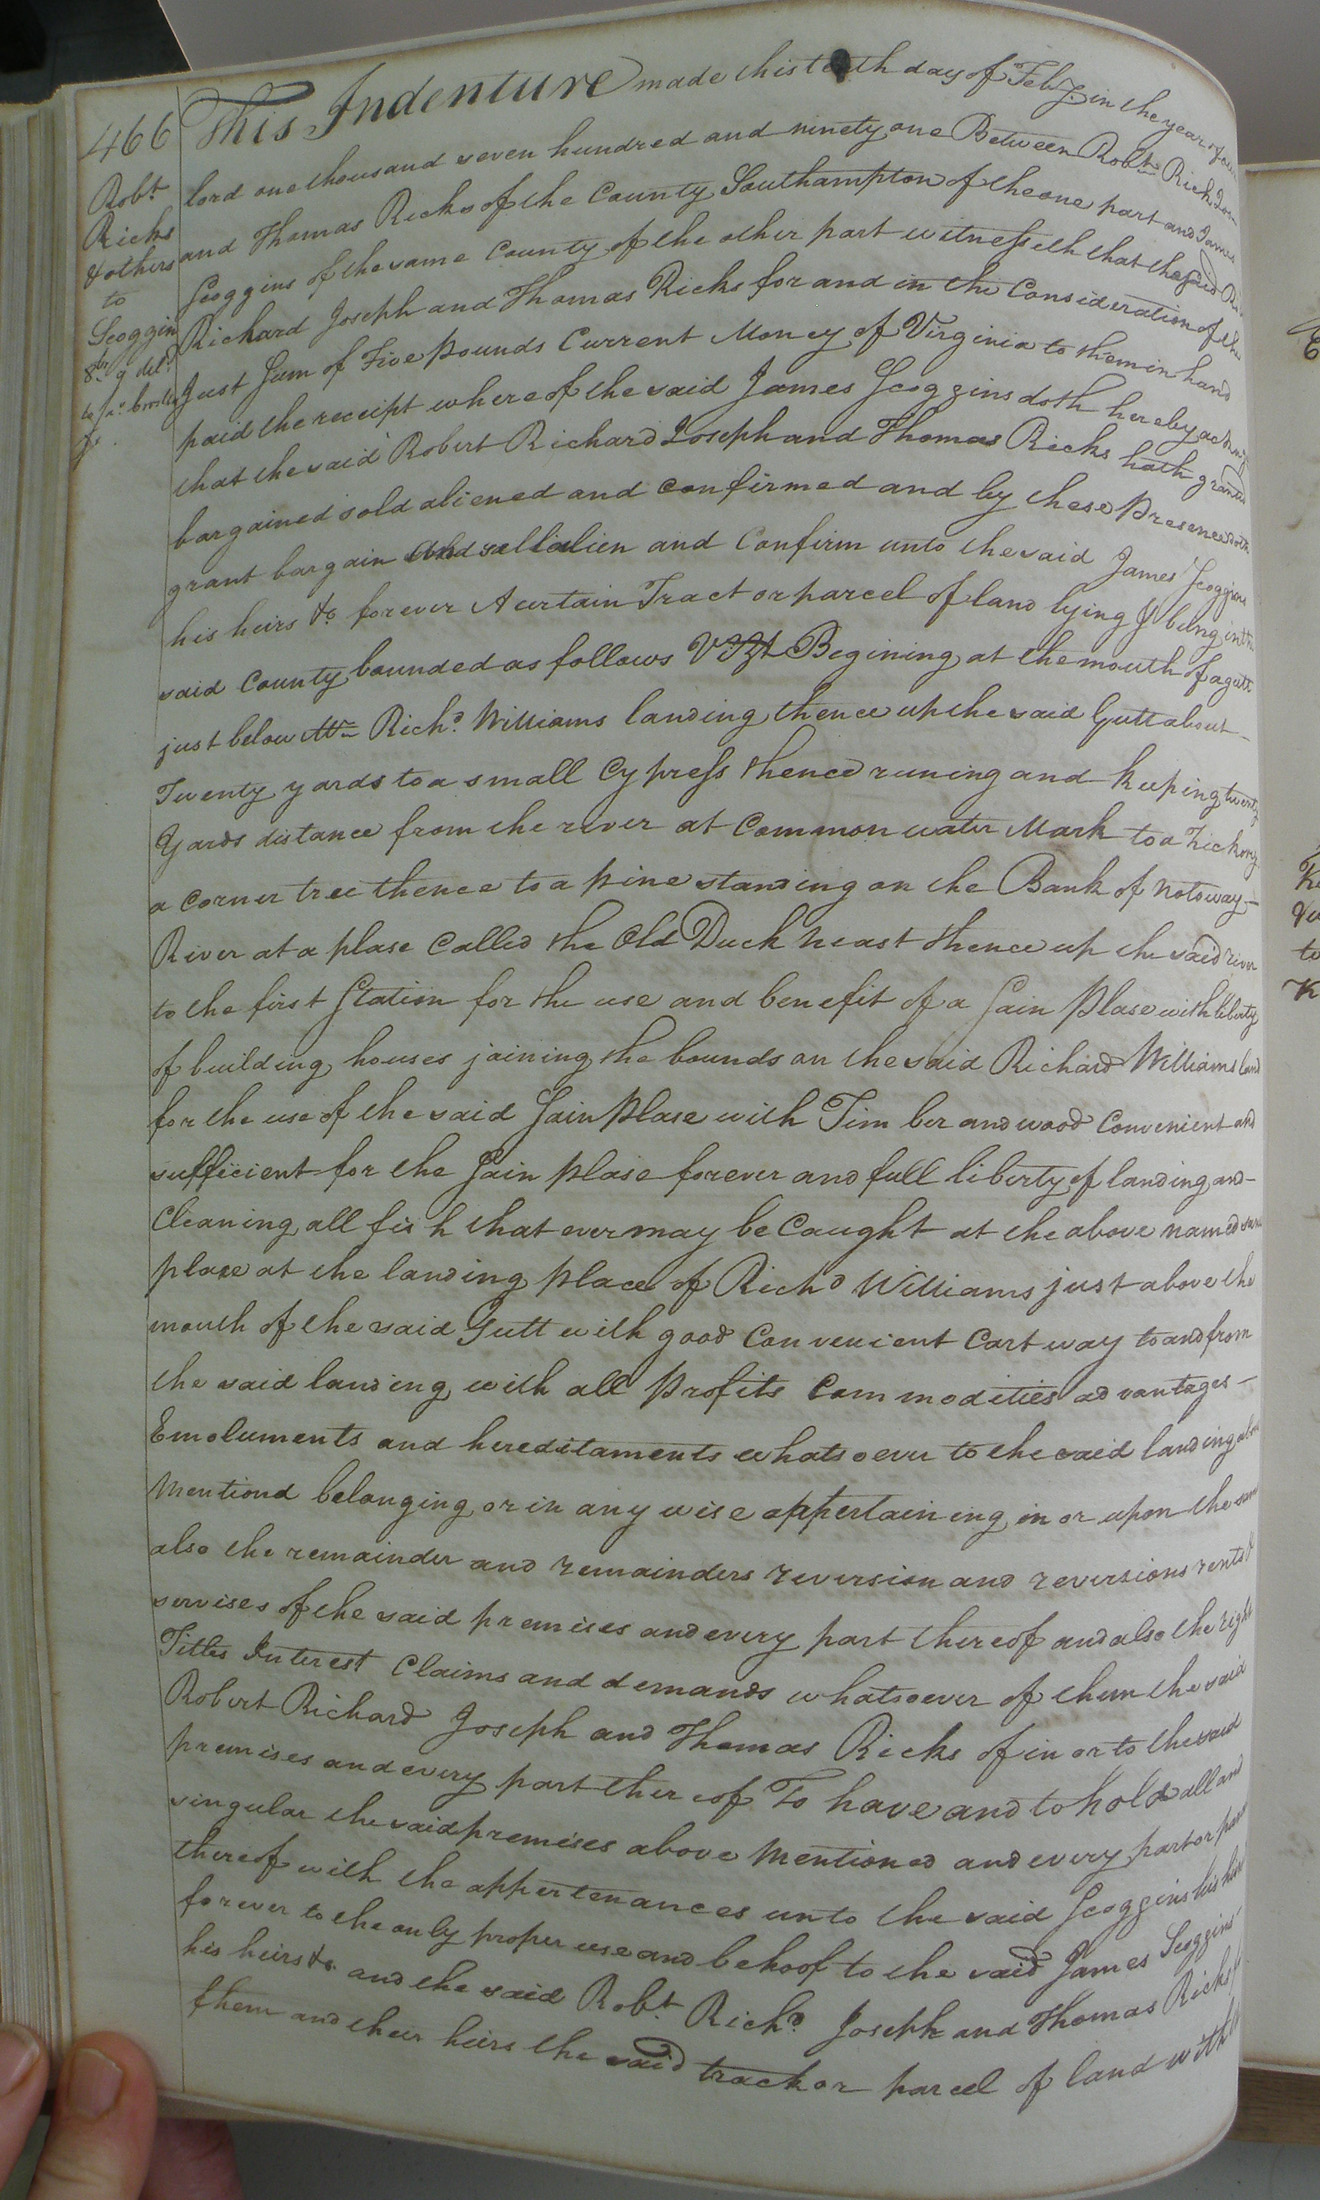 466
Robt
Ricks
& others
to
Scoggin
This Indenture made this tenth day of Feby in the year of our
lord one thousand seven hundred and ninety one Between Robt Richd Jos
and Thomas Ricks of the County Southampton of the one part and James
Scoggins of the same County of the other part witnesseth that the said Ro
Richard Joseph and Thomas Ricks for and in the Consideration of the
Just Sum of Five pounds Current Money of Virginia to them in hand
paid the receipt whereof the said James Scoggins doth hereby acknow
that the said Robert Richard Joseph and Thomas Ricks hath granted
bargained sold aliened and confirmed and by these Presence doth
grant bargain and sell alien and Confirm unto the said James Scoggins
his heirs &c forever A certain Tract or parcel of land lying & being in the
said County bounded as follows Vizt Begining at the mouth of a gutt
just below Mr Richd Williams landing thence up the said Gutt about
Twenty yards to a small Cypress thence runing and keeping twenty
Yards distance from the river at Common water Mark to a hickory
a corner tree thence to a pine standing on the Bank of Notoway
River at a plase Called the Old Duck Neast thence up the said river
to the first Station for the use and benefit of a Sain Plase with liberty
of building houses joining the bounds on the said Richard Williams land
for the use of the said Sain Plase with Timber and wood Convenient and
sufficient for the Sain plase forever and full liberty of landing and
Cleaning all fish that ever may be Caught at the above named
plase at the landing place of Richd Williams just above the
mouth of the said Gutt with good Convenient Cart way to and from
the said landing with all Profits Commodities advantages
Emoluments and hereditaments whatsoever to the said landing above
Mentiond belonging or in any wise appertaining in or upon the same
also the remainder and remainders reversion and reversions rents &
servises of the said premises and every part thereof and also the right
Titles Interest Claims and demands whatsoever of them the said
Robert Richard Joseph and Thomas Ricks of in or to the said
premises and every part thereof To have and to hold all and
singular the said premises above Mentioned and every part or parcel
thereof with the appertenances unto the said Scoggins his heirs
forever to the only proper use and behoof to the said James Scoggins
his heirs &c and the said Robt Richd Joseph and Thomas Ricks
them and their heirs the said track or parcel of land with